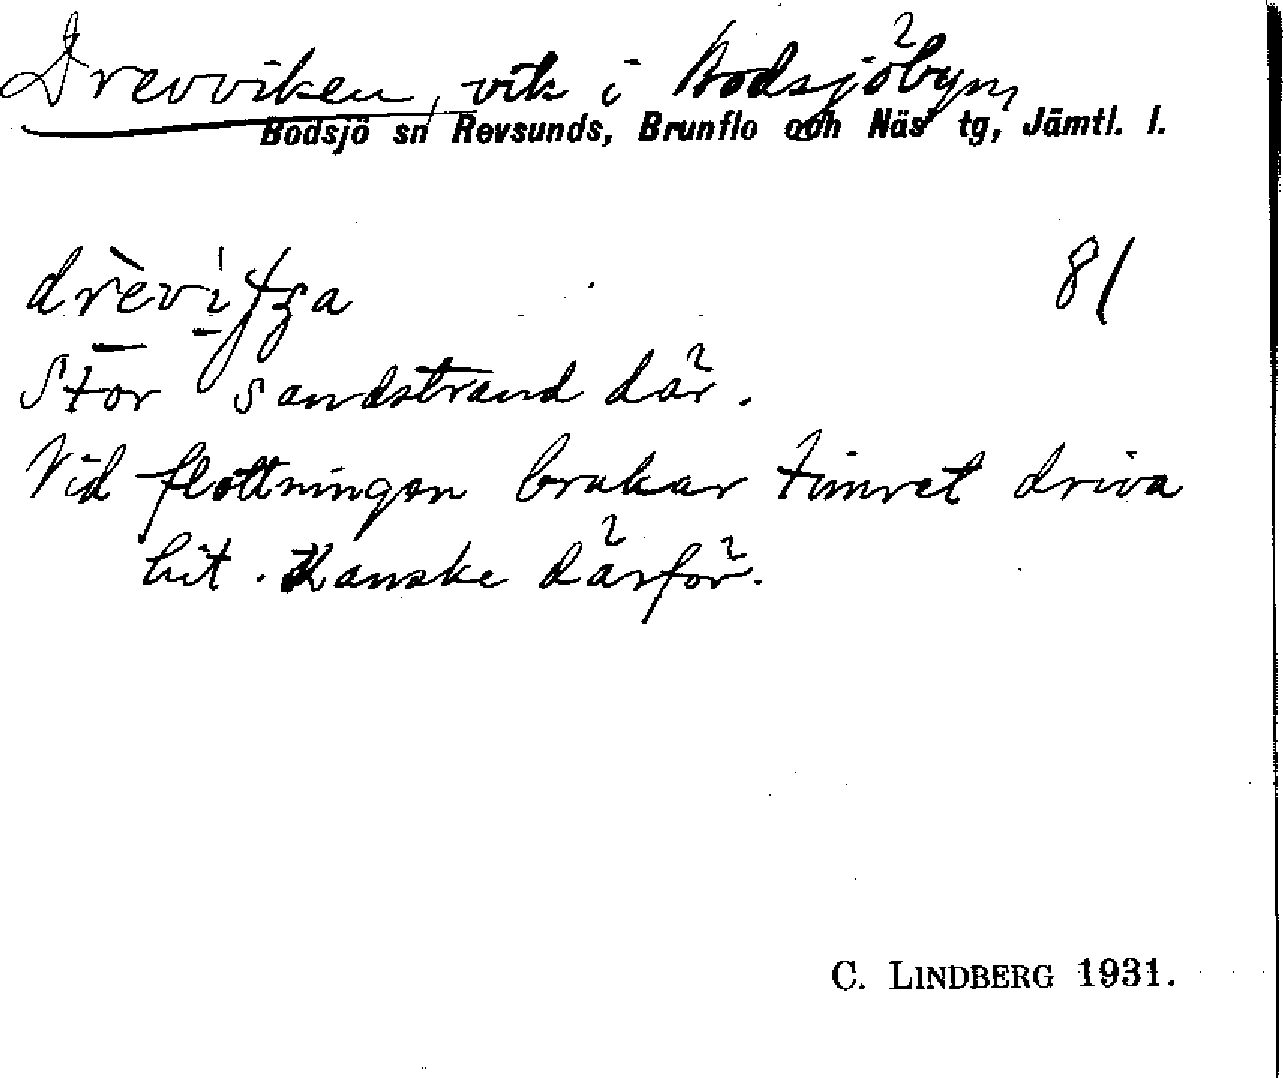 Drevviken, vik i Bodsjöbyn,
Bodsjö sn Revsunds, Brunflo och Näs tg, Jämtl. l.
81
Stor sandstrand där.
Vid flottningen brukar timret driva
hit. Kanske därför.
C. LINDBERG 1931.